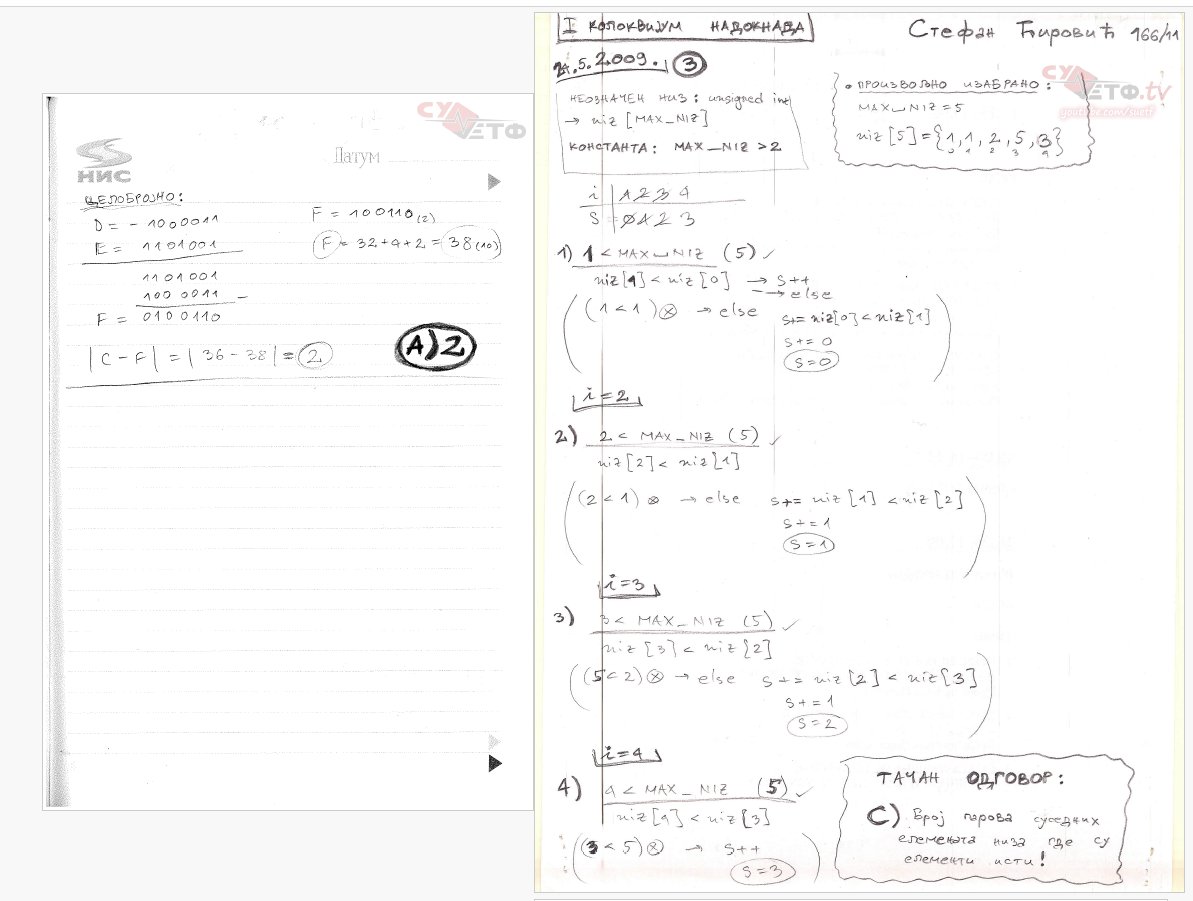 СУ ЕТФ
Датум
НИС
ЦЕЛОБРОЈНО:
D = - 1000011
E = 1101001
1101001
1000011 -
F = 0100110
|C - F| = |36 - 38| = 2
F = 100110(2)
F = 32+4+2 = 38(10)
A) 2
I КОЛОКВИЈУМ НАДОКНАДА
Стефан Ћировић 166/11
24.5.2009. 3
НЕОЗНАЧЕН НИЗ: unsigned int
→ niz [MAX_NIZ]
КОНСТАНТА: MAX_NIZ > 2
СУ ЕТФ.tv
youtube.com/suetf
• ПРОИЗВОЉНО ИЗАБРАНО:
MAX_NIZ = 5
niz [5] = {1, 1, 2, 5, 3}
0 1 2 3 4
i | 1 2 3 4
S = 0 1 2 3
1) 1 < MAX_NIZ (5) ✓
niz[1] < niz[0] → S++
→ else
(1 < 1) ⊗ → else s+= niz[0] < niz[1]
s+= 0
S=0
i=2
2) 2 < MAX_NIZ (5) ✓
niz[2] < niz[1]
(2 < 1) ⊗ → else s+= niz[1] < niz[2]
s+=1
S=1
i=3
3) 3 < MAX_NIZ (5) ✓
niz[3] < niz[2]
(5 < 2) ⊗ → else s+= niz[2] < niz[3]
s+=1
S=2
i=4
4) 4 < MAX_NIZ (5) ✓
niz[4] < niz[3]
(3 < 5) ⊗ → S++
S=3
ТАЧАН ОДГОВОР:
C) Број парова суседних
елемената низа где су
елементи исти!